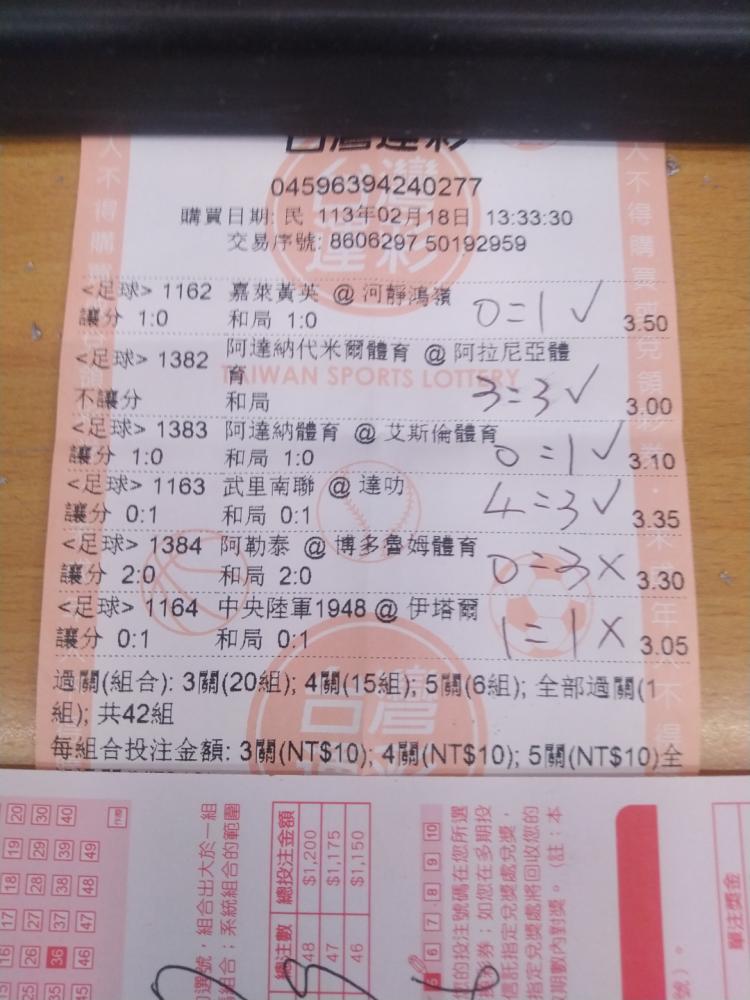 台灣運彩
04596394240277
購買日期: 民 113年02月18日 13:33:30
交易序號: 8606297 50192959
<足球> 1162 嘉萊黃英 @ 河靜鴻嶺
讓分 1:0 和局 1:0 0=1 ✓ 3.50
<足球> 1382 阿達納代米爾體育 @ 阿拉尼亞體
育
TAIWAN SPORTS LOTTERY
不讓分 和局 3=3 ✓ 3.00
<足球> 1383 阿達納體育 @ 艾斯倫體育
讓分 1:0 和局 1:0 0=1 ✓ 3.10
<足球> 1163 武里南聯 @ 達叻
讓分 0:1 和局 0:1 4=3 ✓ 3.35
<足球> 1384 阿勒泰 @ 博多魯姆體育
讓分 2:0 和局 2:0 0=3 × 3.30
<足球> 1164 中央陸軍1948 @ 伊塔爾
讓分 0:1 和局 0:1 1=1 × 3.05
過關(組合): 3關(20組); 4關(15組); 5關(6組); 全部過關(1
組); 共42組
每組合投注金額: 3關(NT$10); 4關(NT$10); 5關(NT$10)全
20 30 40
19 29 39 49
18 28 38 48
17 27 37 47
16 26 36 46
35 45
選號，組合出大於一組
組合；系統組合的範圍
總注數 總投注金額
48 $1,200
47 $1,175
46 $1,150
6 7 8 9 10
您的投注號碼在您所選
獎券；如您在多期投
託指定兌獎處兌獎，
指定兌獎處將回收您的
期數內對獎。（註：本
號）。
單注獎金